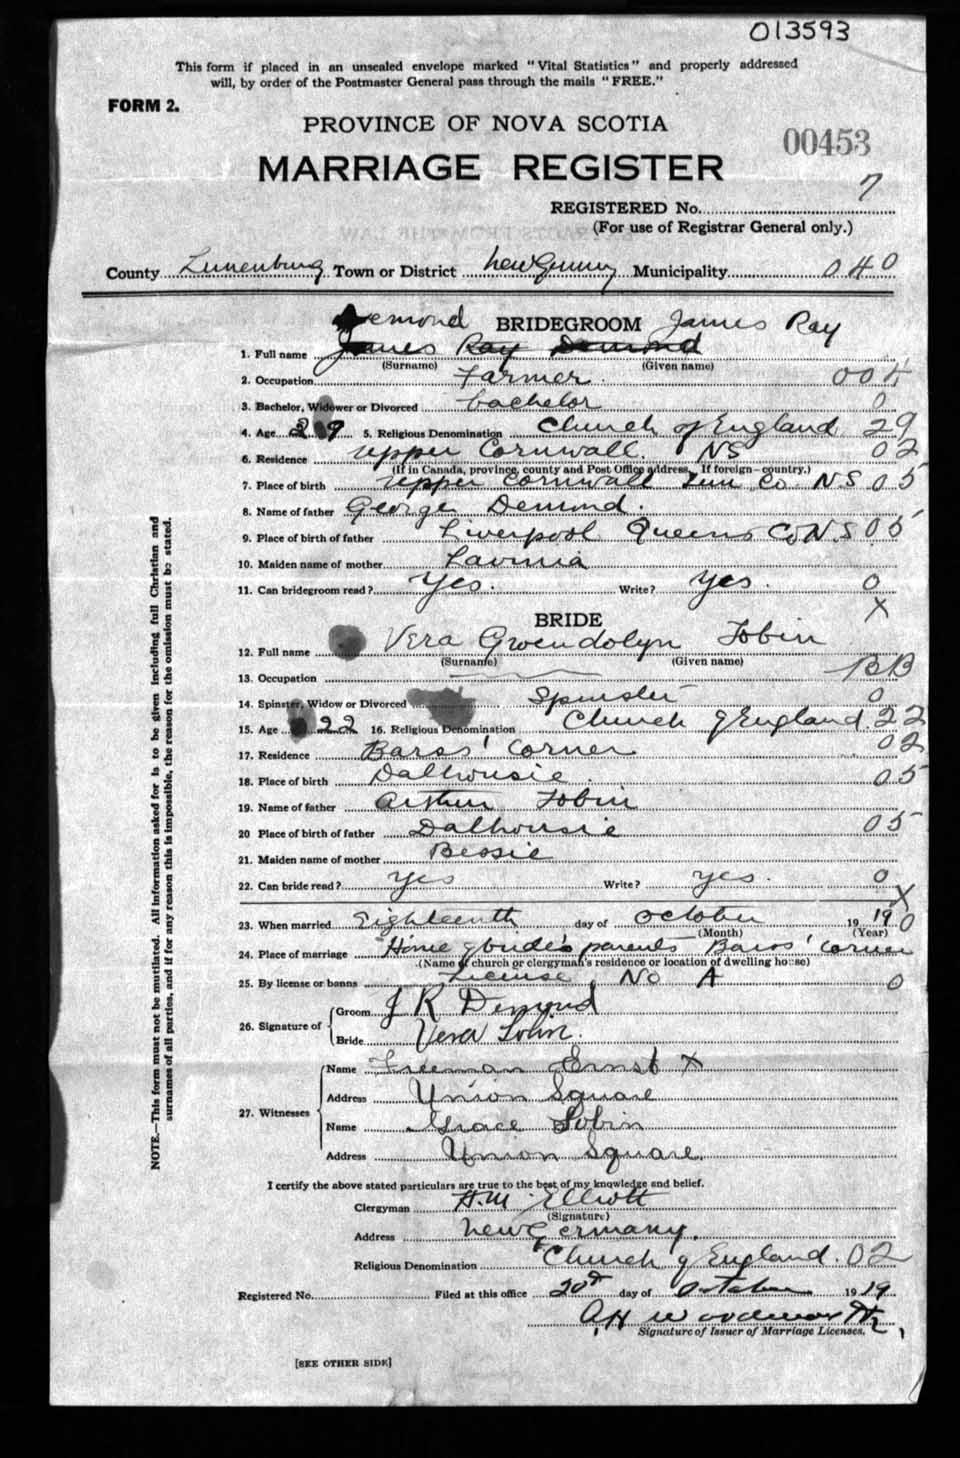 013593
This form if placed in an unsealed envelope marked "Vital Statistics" and properly addressed
will, by order of the Postmaster General pass through the mails "FREE."
FORM 2.
PROVINCE OF NOVA SCOTIA
00453
MARRIAGE REGISTER
7
REGISTERED No.
(For use of Registrar General only.)
County Lunenburg Town or District New Germany Municipality 040
Demond BRIDEGROOM James Ray
1. Full name James Ray Demond
(Surname) (Given name)
2. Occupation Farmer. 004
3. Bachelor, Widower or Divorced bachelor 0
4. Age 29 5. Religious Denomination Church of England 29
6. Residence Upper Cornwall. NS 02
(If in Canada, province, county and Post Office address. If foreign—country.)
7. Place of birth Upper Cornwall Lun Co. N.S 05
8. Name of father George Demond.
9. Place of birth of father Liverpool Queens Co N.S 05
10. Maiden name of mother Lavinia
11. Can bridegroom read? Yes. Write? Yes. 0
X
BRIDE
12. Full name Vera Gwendolyn Tobin
(Surname) (Given name)
13. Occupation BB
14. Spinster, Widow or Divorced Spinster 0
15. Age 22 16. Religious Denomination Church of England. 22
17. Residence Barss' Corner 02
18. Place of birth Dalhousie 05
19. Name of father Arthur Tobin
20 Place of birth of father Dalhousie 05
21. Maiden name of mother Bessie
22. Can bride read? Yes Write? Yes. 0
X
23. When married Eighteenth day of October 19 19 0
(Month) (Year)
24. Place of marriage Home of bride's parents Barss' Corner
(Name of church or clergyman's residence or location of dwelling house)
25. By license or banns License No A 0
26. Signature of Groom J R Demond
Bride Vera Tobin.
27. Witnesses Name Freeman Ernst X
Address Union Square
Name Grace Tobin
Address Union Square.
I certify the above stated particulars are true to the best of my knowledge and belief.
Clergyman H.M. Elliott
(Signature)
Address New Germany.
Religious Denomination Church of England. 02
Registered No. Filed at this office 20th day of October 19 19
A H
Signature of Issuer of Marriage Licenses.
[SEE OTHER SIDE]
NOTE.—This form must not be mutilated. All information asked for is to be given including full Christian and
surnames of all parties, and if for any reason this is impossible, the reason for the omission must be stated.